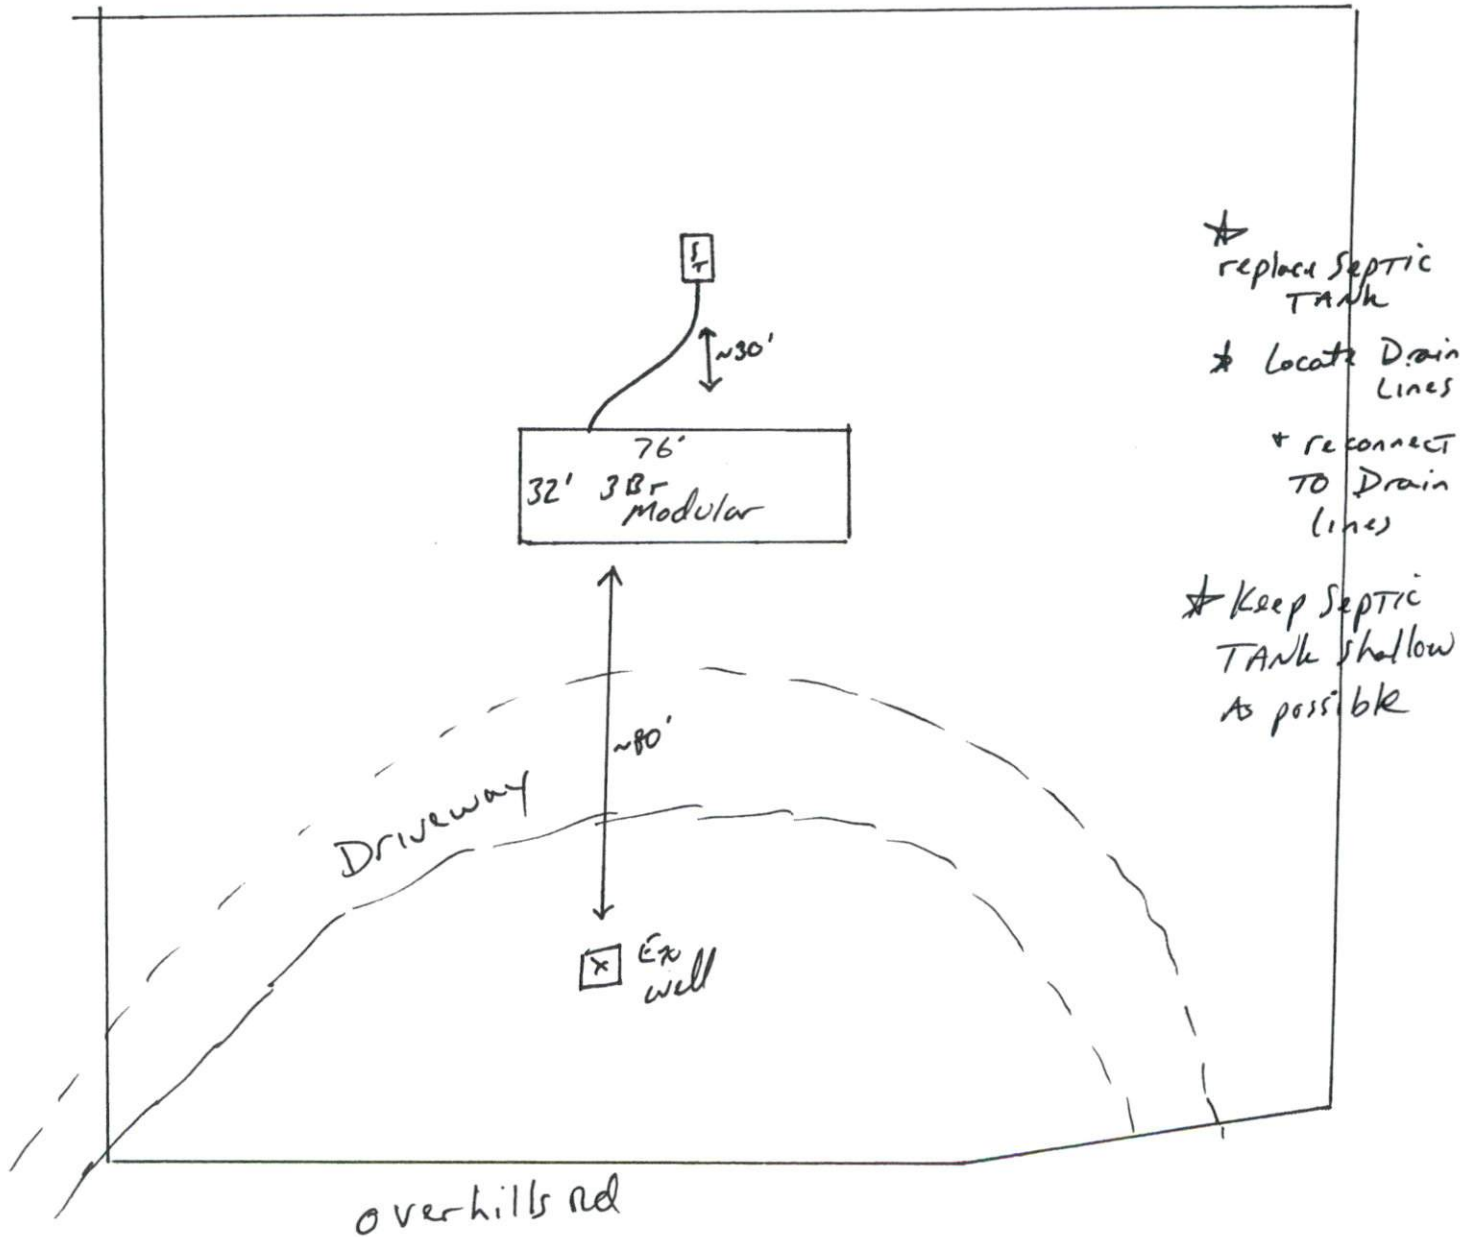 ST
~30'
76'
32' 3Br
Modular
~80'
Driveway
Ex
well
overhills Rd
replace Septic
TANK
Locate Drain
Lines
+ reconnect
To Drain
lines
Keep Septic
TANK shallow
As possible